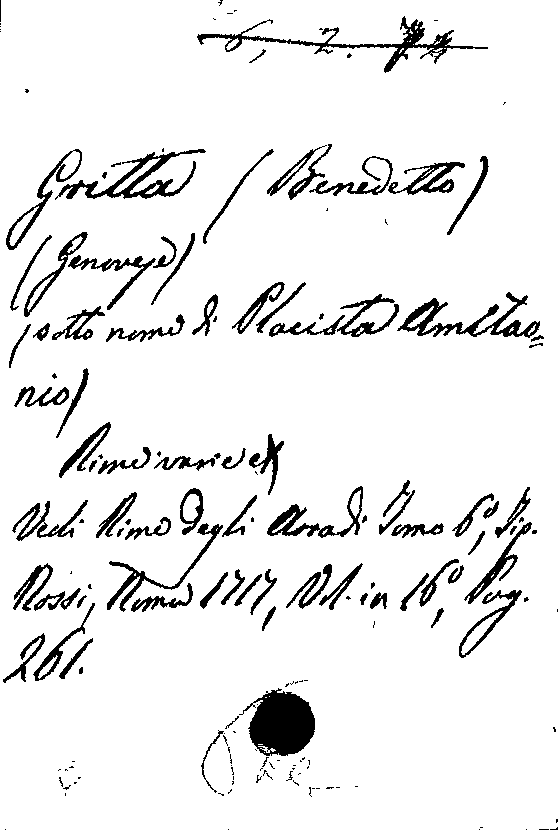 6, 2.
Gritta (Benedetto)
(Genovese)
(sotto nome di Placisto Amitao=
nio)
Rime varie
Vedi Rime degli Arcadi Tomo 6º, Tip.
Rossi, Roma 1717, Vol. in 16º, Pag.
261.